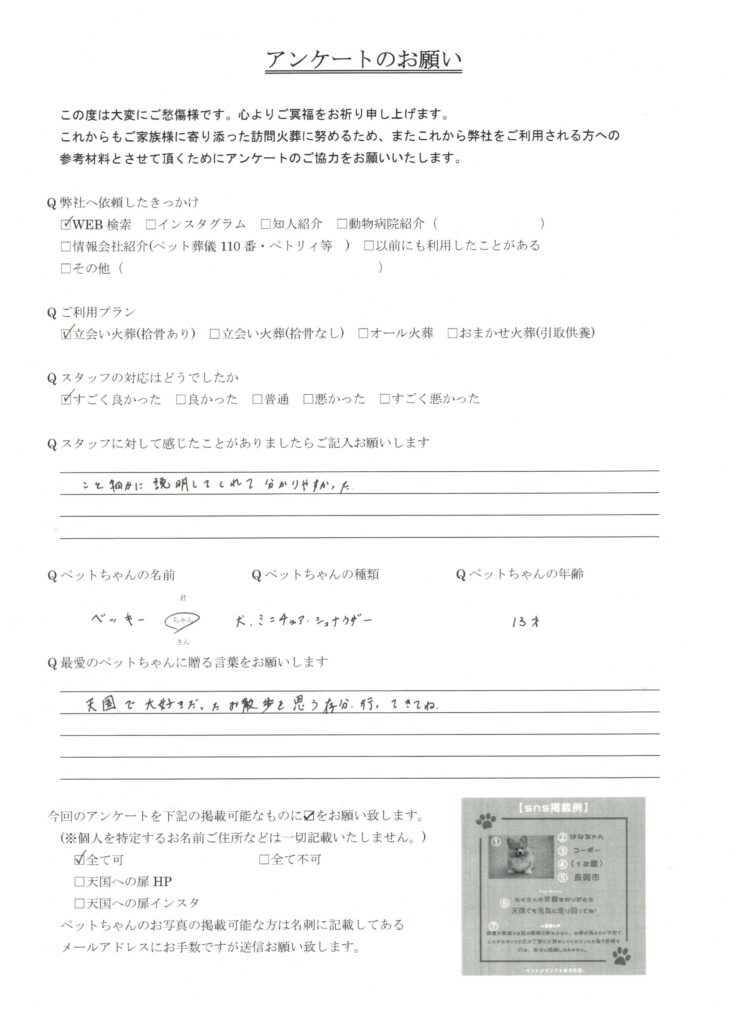 アンケートのお願い
この度は大変にご愁傷様です。心よりご冥福をお祈り申し上げます。
これからもご家族様に寄り添った訪問火葬に努めるため、またこれから弊社をご利用される方への
参考材料とさせて頂くためにアンケートのご協力をお願いいたします。
Q 弊社へ依頼したきっかけ
☑WEB 検索 □インスタグラム □知人紹介 □動物病院紹介（ ）
□情報会社紹介(ペット葬儀 110 番・ペトリィ等 ) □以前にも利用したことがある
□その他（ ）
Q ご利用プラン
☑立会い火葬(拾骨あり) □立会い火葬(拾骨なし) □オール火葬 □おまかせ火葬(引取供養)
Q スタッフの対応はどうでしたか
☑すごく良かった □良かった □普通 □悪かった □すごく悪かった
Q スタッフに対して感じたことがありましたらご記入お願いします
こと細かに説明してくれて分かりやすかった
Q ペットちゃんの名前 Q ペットちゃんの種類 Q ペットちゃんの年齢
君
ベッキー ちゃん 犬.ミニチュア・シュナウザー 13才
さん
Q 最愛のペットちゃんに贈る言葉をお願いします
天国で大好きだったお散歩を思う存分.行ってきてね.
今回のアンケートを下記の掲載可能なものに☑をお願い致します。
(※個人を特定するお名前ご住所などは一切記載いたしません。)
☑全て可 □全て不可
□天国への扉 HP
□天国への扉インスタ
ペットちゃんのお写真の掲載可能な方は名刺に記載してある
メールアドレスにお手数ですが送信お願い致します。
【sns掲載例】
① ② はなちゃん
③ コーギー
④ (12歳)
⑤ 長岡市
⑥ たくさんの笑顔をありがとう
天国でも元気に走り回ってね!
⑦